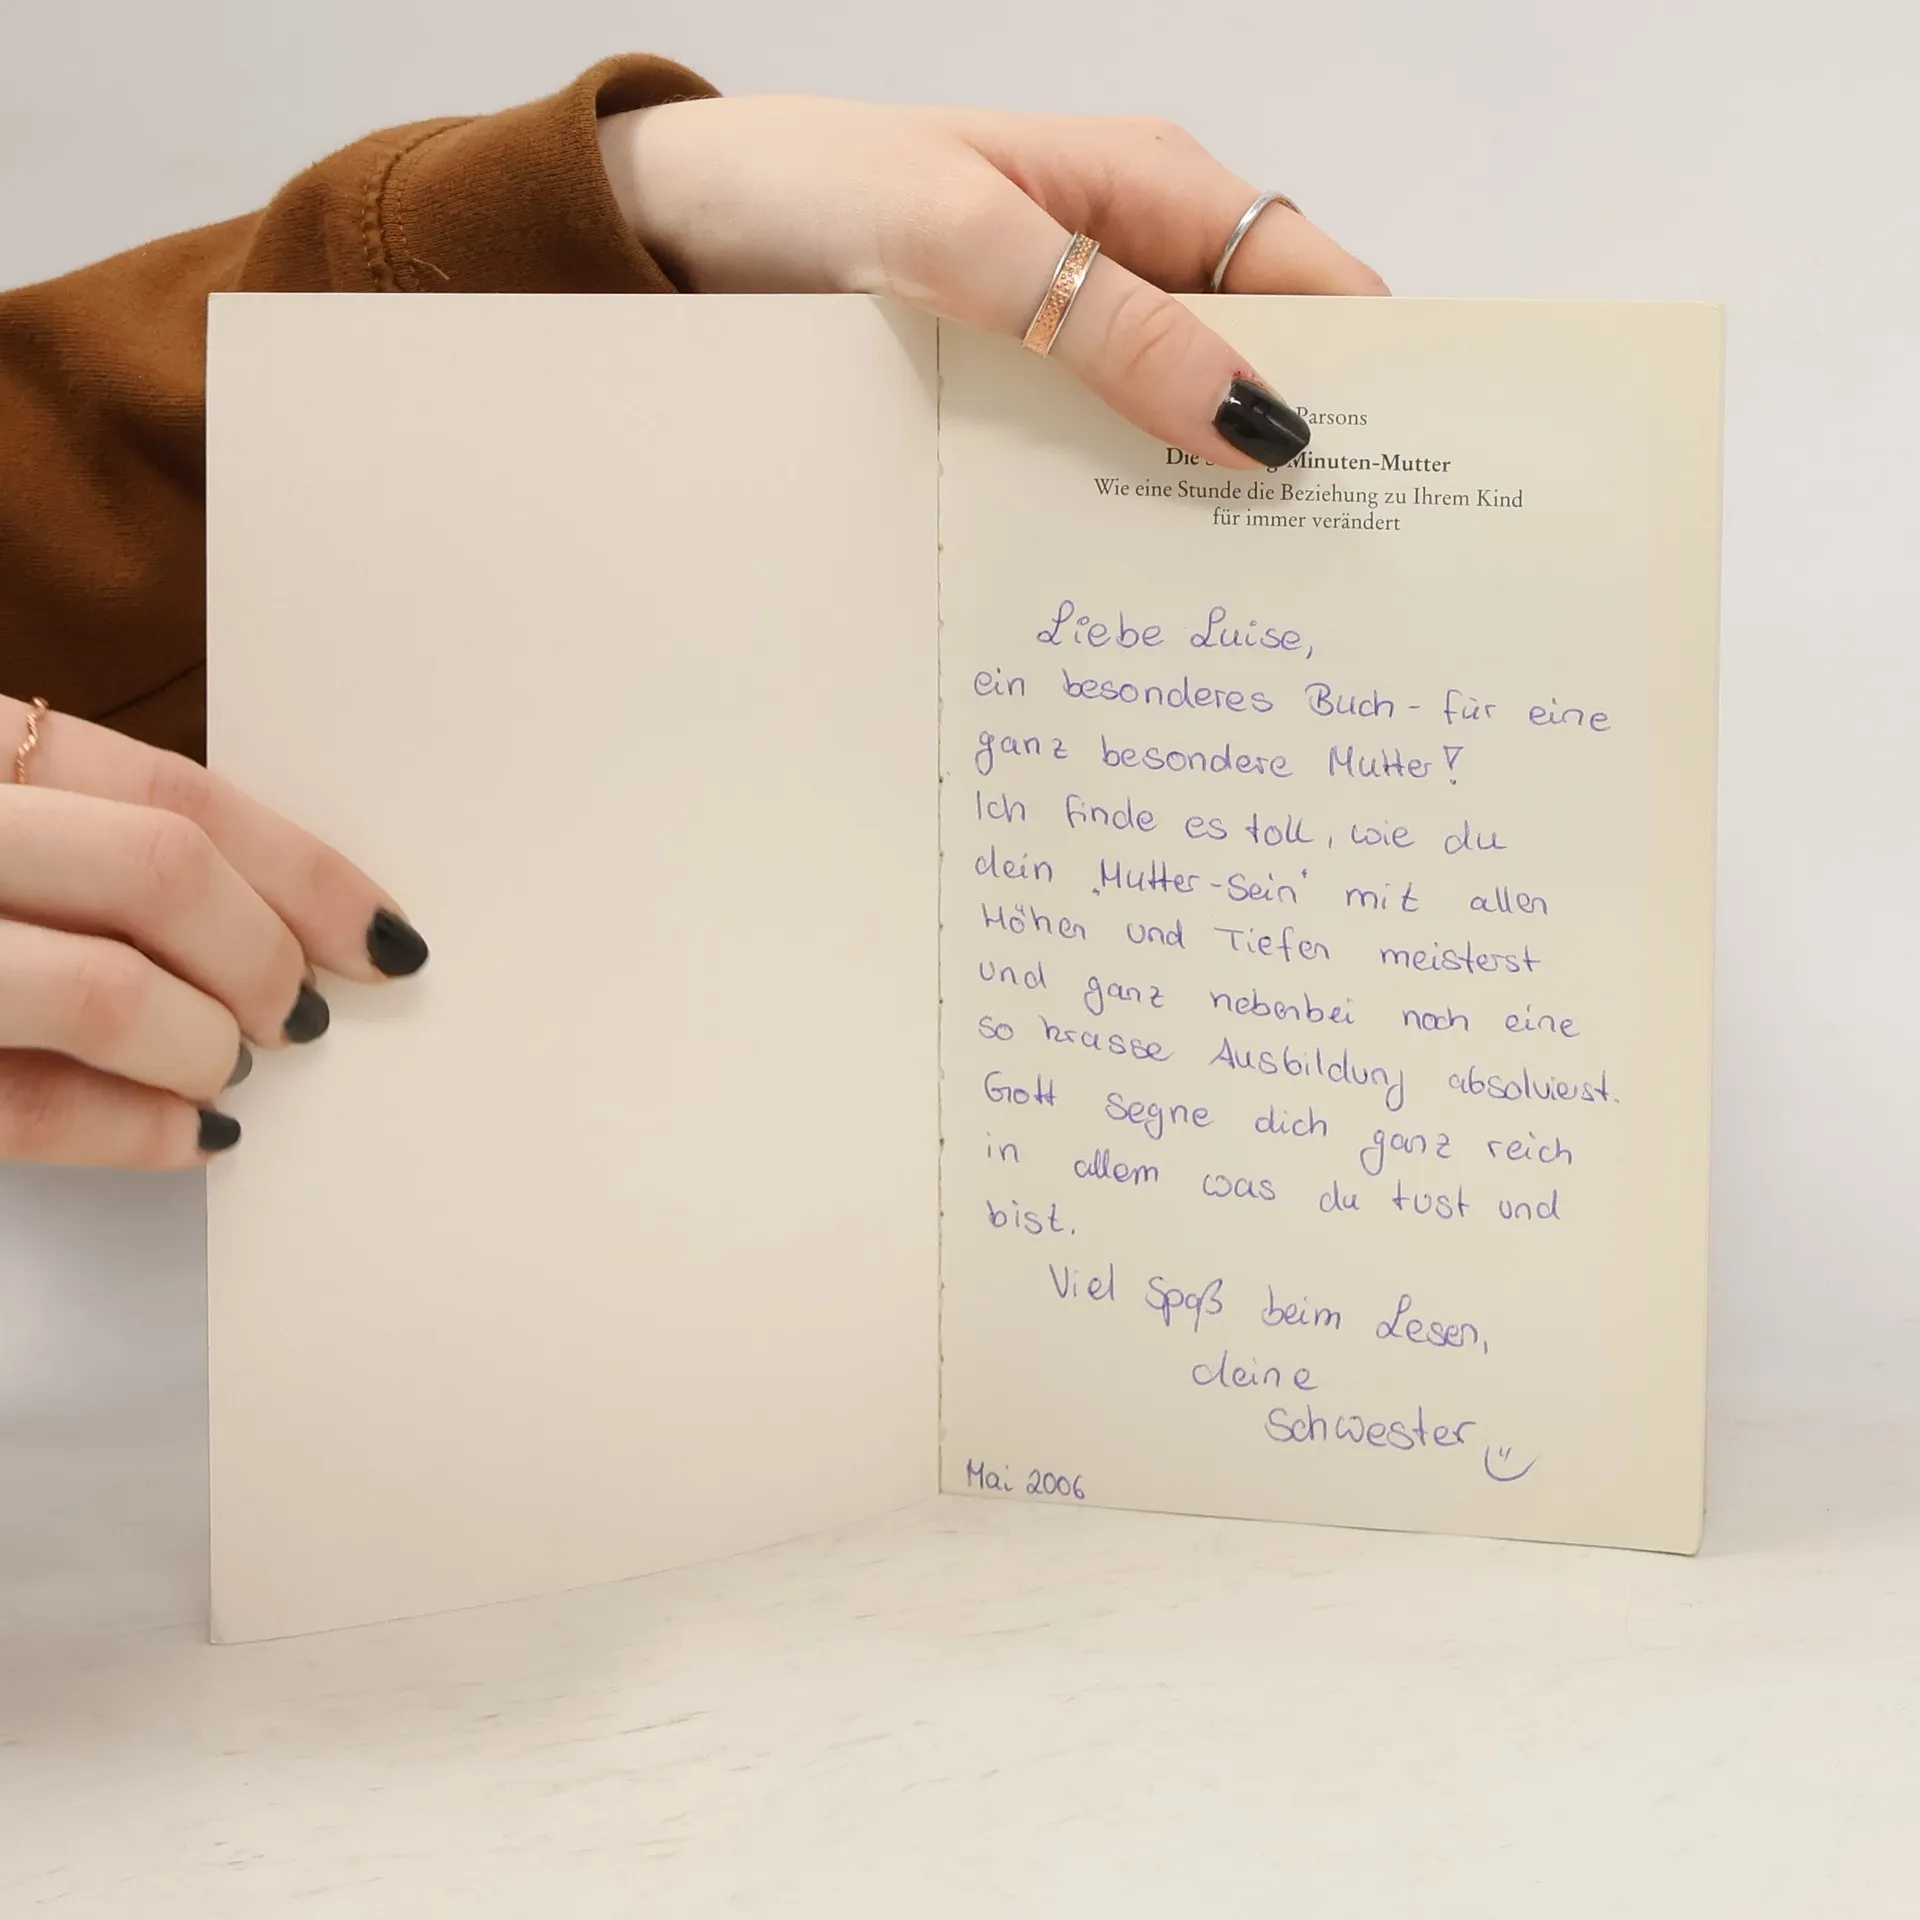 Parsons
Die Minuten-Mutter
Wie eine Stunde die Beziehung zu Ihrem Kind
für immer verändert
Liebe Luise,
ein besonderes Buch - für eine
ganz besondere Mutter!
Ich finde es toll, wie du
dein ‚Mutter-Sein‘ mit allen
Höhen und Tiefen meisterst
und ganz nebenbei noch eine
so krasse Ausbildung absolvierst.
Gott segne dich ganz reich
in allem was du tust und
bist.
Viel Spaß beim Lesen,
deine
Schwester
Mai 2006